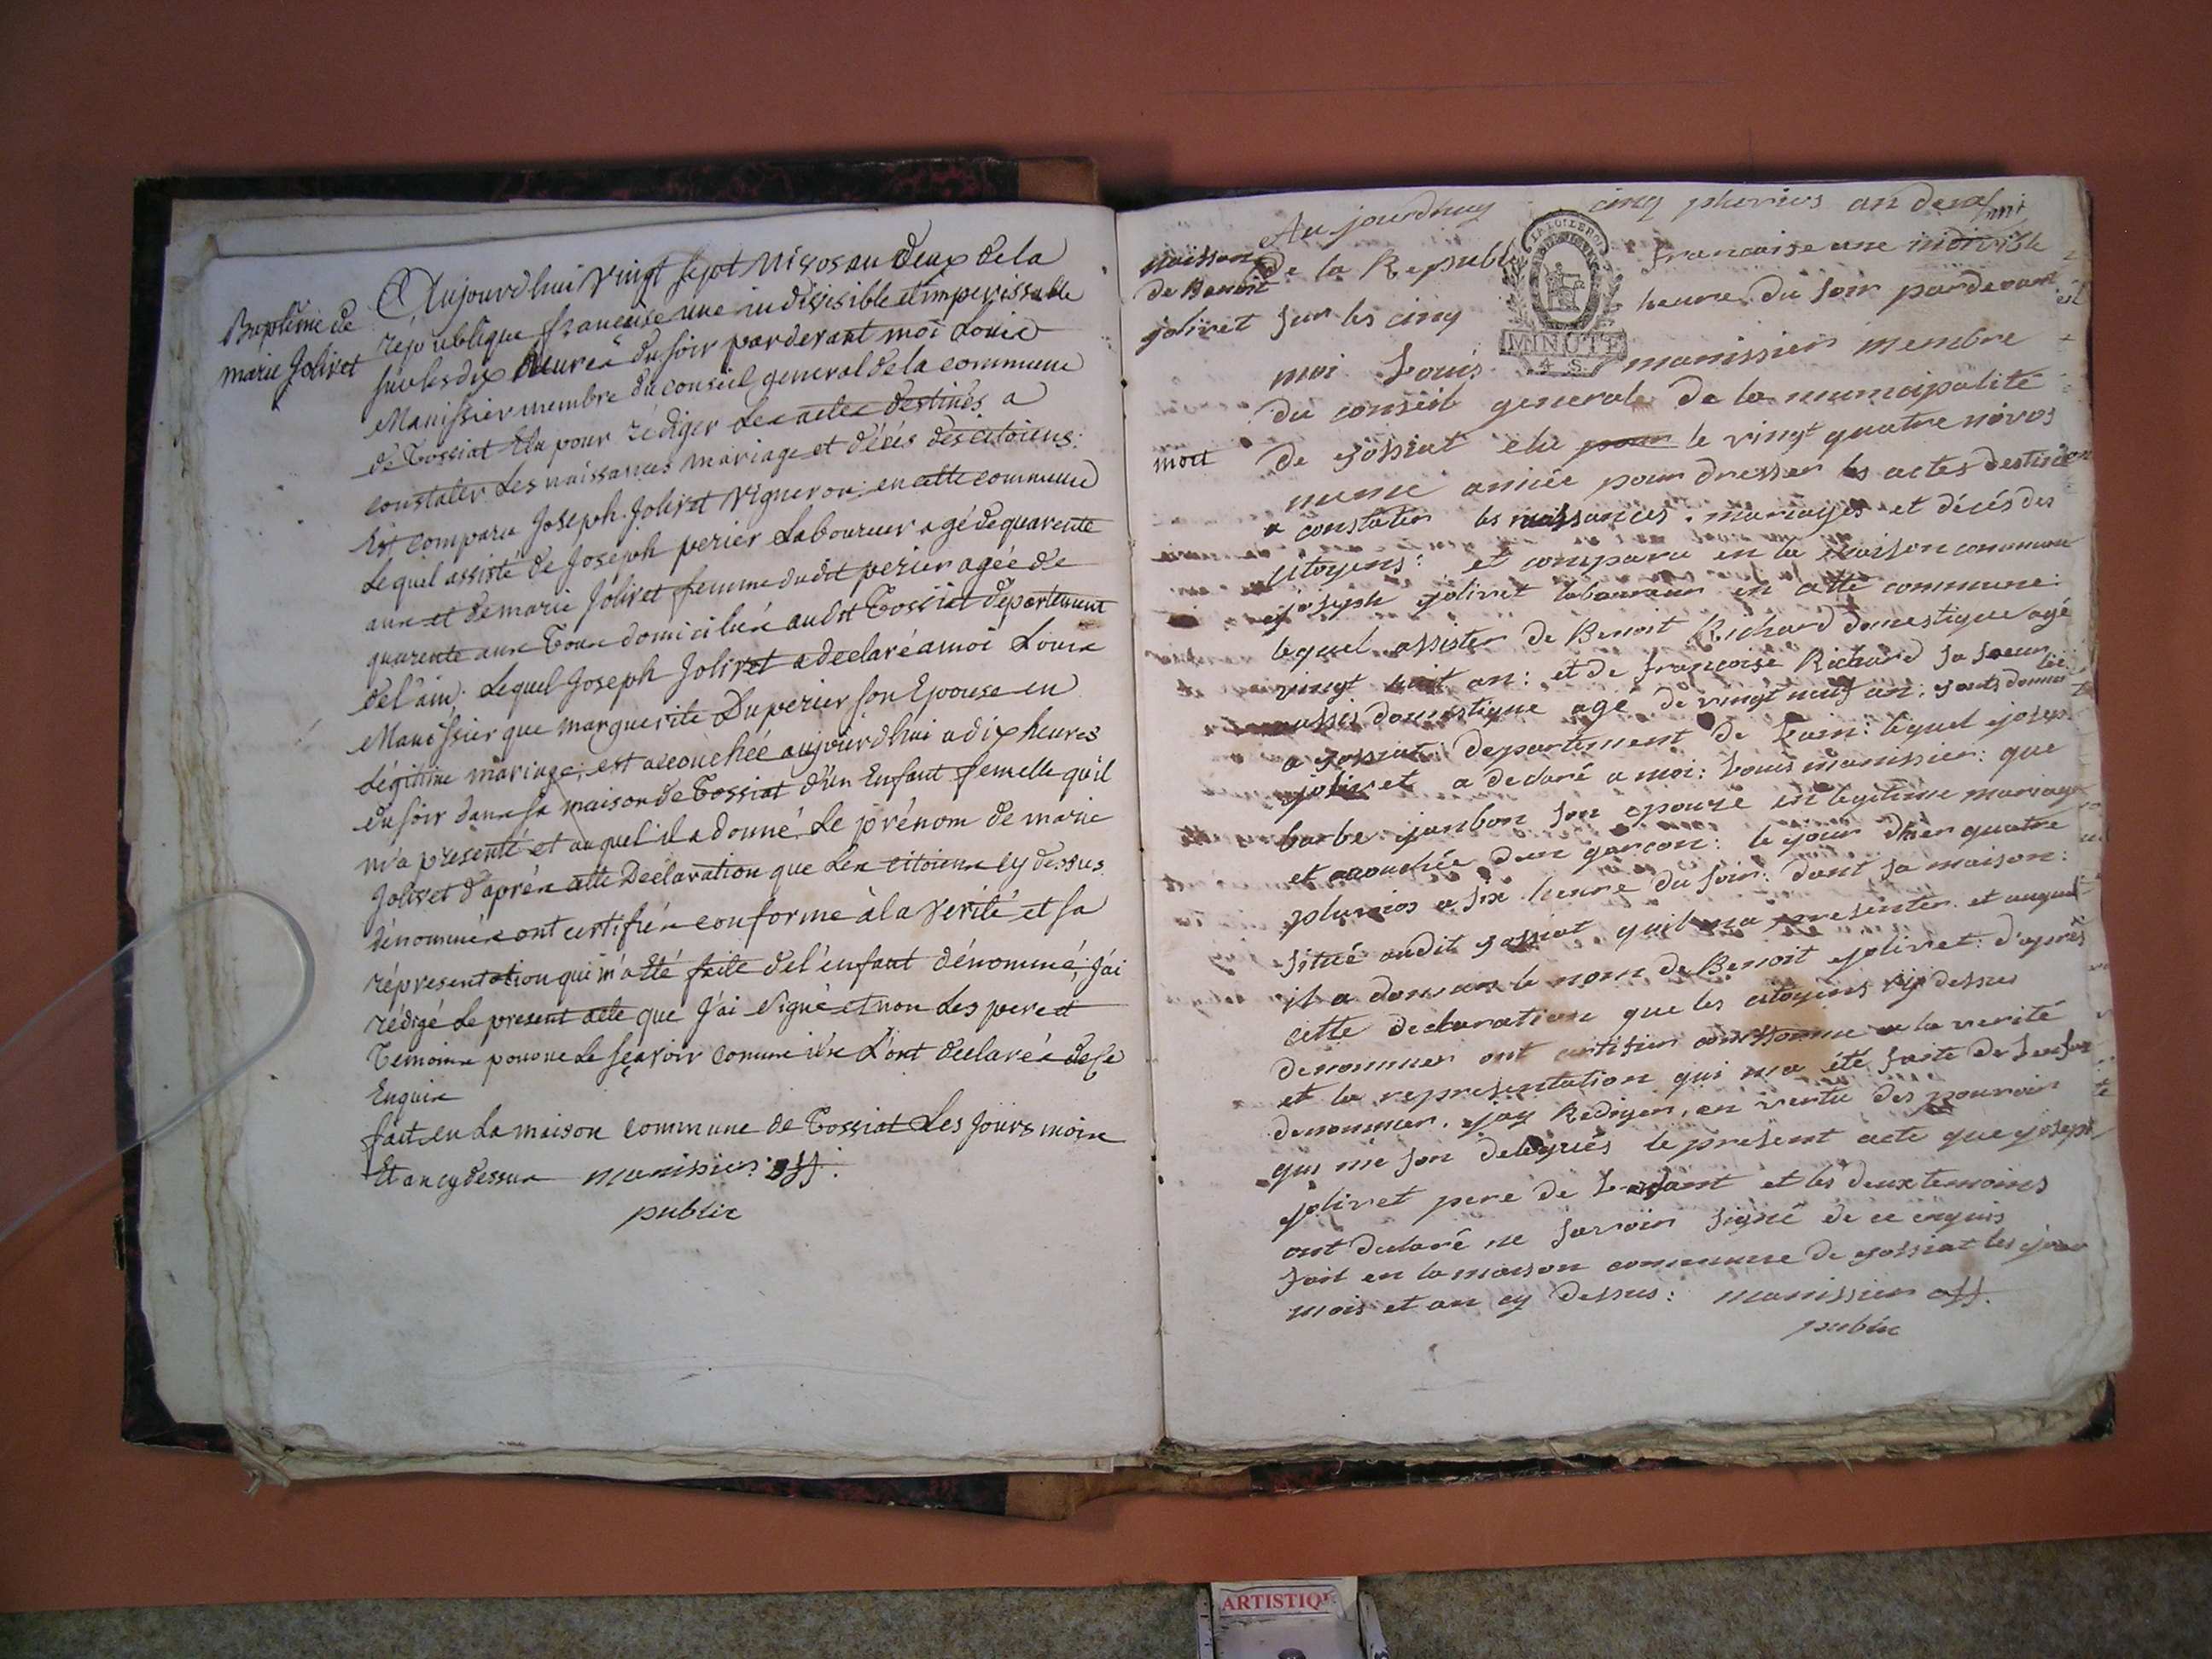 Baptême de
marie Jolivet
Aujourd'hui vingt sept Nivos an deux de la
république française une indivisible et imperissable
sur les dix heures du soir pardevant moi Louis
Manissier membre du conseil general de la commune
de Tossiat Elu pour rédiger Les actes destinés a
constater Les naissances mariage et décés des citoiens:
Est comparu Joseph Jolivet Vigneron en cette commune
Lequel assisté de Joseph perier Laboureur agé de quarente
ans et de marie Jolivet femme dudit perier agée de
quarente ans Tous domiciliés audit Tossiat département
de l'ain: Lequel Joseph Jolivet a declaré a moi Louis
Manissier que marguerite Duperier son Epouse en
Légitime mariage; est accouchée aujourd'hui a dix heures
du soir dans sa maison de Tossiat d'un Enfant femelle qu'il
m'a presenté et auquel il a donné Le prénom de marie
Jolivet d'aprés cette Declaration que Les citoiens cy dessus
dénommés ont certifiés conforme à la verité et sa
répresentation qui m'a été faite de l'enfant dénommé, j'ai
rédigé Le present acte que j'ai signé et non Les pere et
Temoins pour ne Le sçavoir comme ils L'ont declarés de ce
Enquis
fait en La maison commune de Tossiat Les jours mois
Et an cy dessus manissier off.
public
Aujourdhuy cinq pluvios an deux
naissan
de Benoit
jolivet
de la Republ francaise une indivisible
sur les cinq heure du soir pardevant
MINUTE
4 S.
moi Louis manissier membre
du conseil generale de la municipalité
mort
de tossiat elu pour le vingt quatre nivos
meme année pour dresser les actes destiné
a constater les naissances. mariages et décés des
citoyens: et comparu en la maison commune
joseph jolivet laboureur en cette commune:
lequel assister de Benoit Richard domestique agé
vingt huit an: et de françoise Richard sa soeur
aussis domestique agé de vingt neuf an;
a tossiat departement de Lain: lequel josep
jolivet a declaré a moi: Louis manissier: que
barbe janbon son epouse en legitime mariage
et accouchée dun garcon: le jour dhier quatre
pluvios a six heure du soir: dont sa maison:
situé audit tossiat quil ma presenter et auquel
il a donner le nom de Benoit jolivet: d'aprés
cette declaration que les citoyens cy dessus
denommer ont certifier conforme a la verité
et la representation qui ma été faite de
denommer. jay Rediger, en vertu des pouvoir
qui me son delegués le present acte que joseph
jolivet pere de Lenfant et les deux temoins
ont declaré ne savoir signé de ce enquis
fait en la maison commune de tossiat les jour
mois et an cy dessus: manissier off.
public
ARTISTIQ